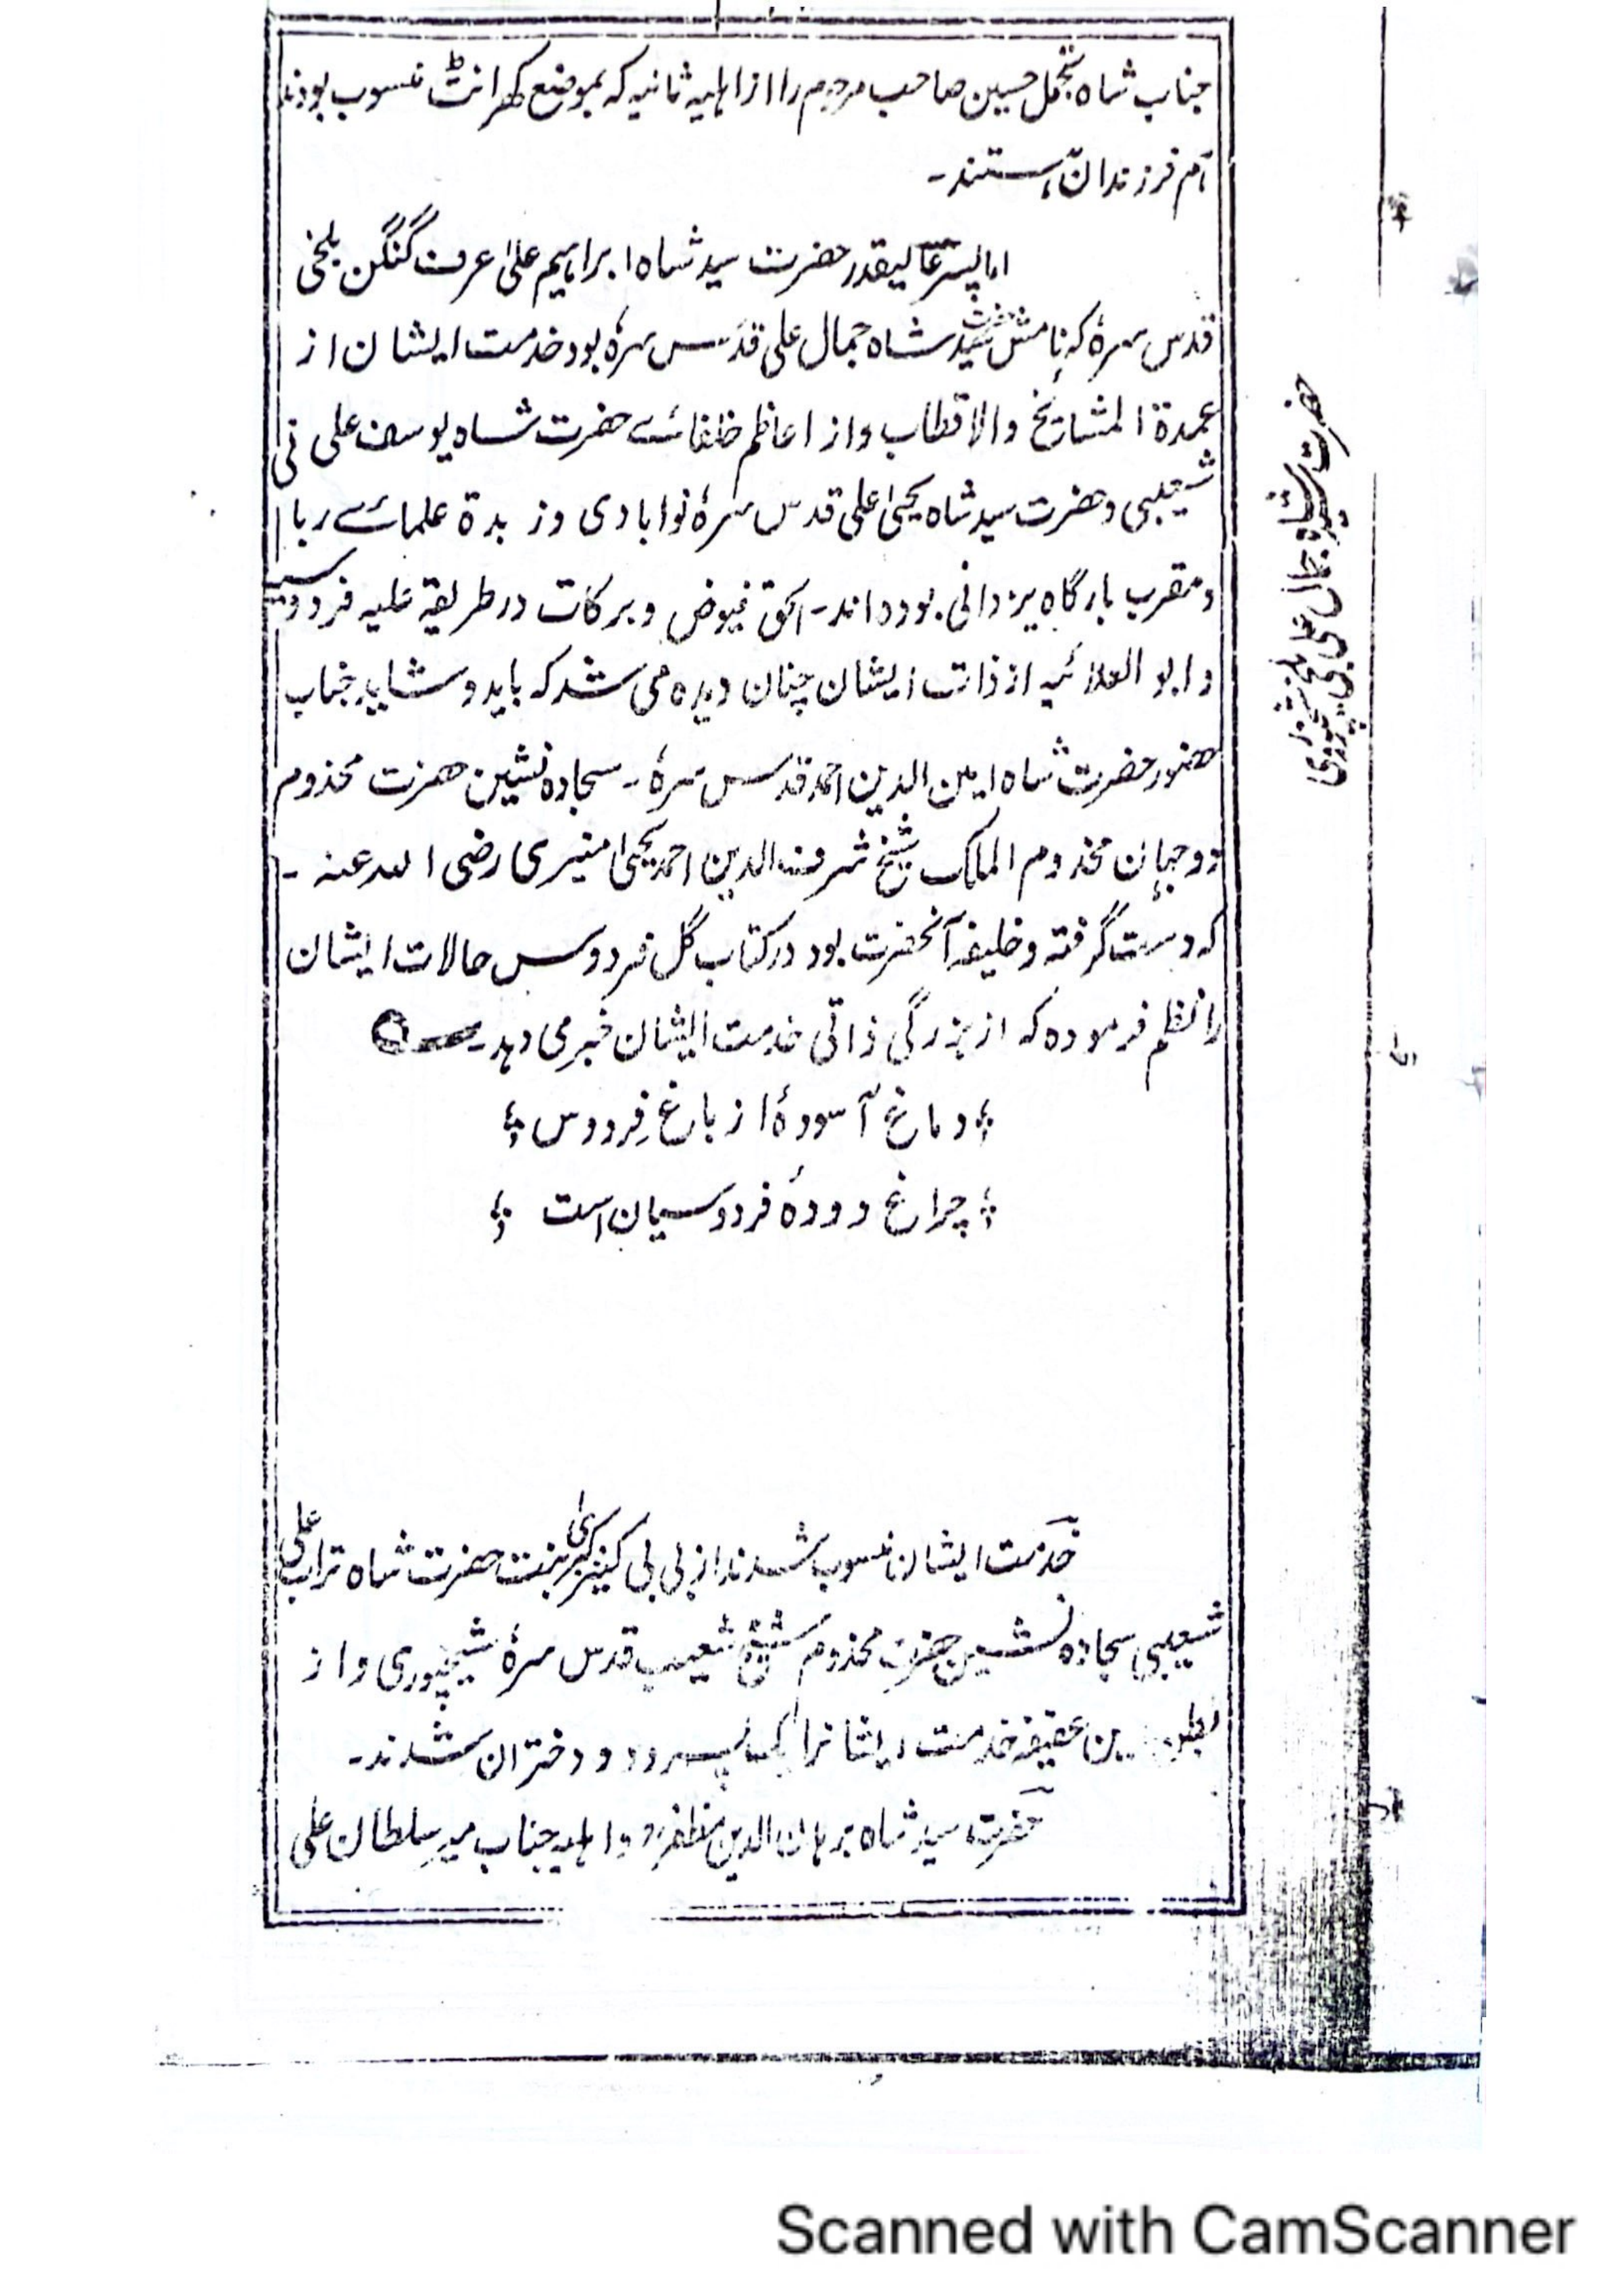 جناب شاہ تجمل حسین صاحب مرحوم را از اہلیہ ثانیہ کہ بموضع کھرانٹ منسوب بودند
ہم فرزندان ہستند۔
اما پسر عالیقدر حضرت سید شاہ ابراہیم علی عرف گنگن بلخی
قدس سرہٗ کہ نامش حضرت سید شاہ جمال علی قدس سرہٗ بود خدمت ایشان از
عمدۃ المشائخ والاقطاب واز اعاظم خلفائے حضرت شاہ یوسف علی
شعیبی وحضرت سید شاہ یحییٰ علی قدس سرہٗ نوابادی وزبدۃ علمائے ربانی
ومقرب بارگاہ یزدانی بودہ اند۔ الحق فیوض وبرکات در طریقہ علیہ فردوسیہ
وابو العلائیہ از ذات ایشان چنان دیدہ می شد کہ باید و شاید جناب
حضور حضرت شاہ امین الدین احمد قدس سرہٗ۔ سجادہ نشین حضرت مخدوم
دوجہان مخدوم الملک شیخ شرف الدین احمد یحییٰ منیری رضی اللہ عنہ۔
کہ دست گرفتہ وخلیفہ آنحضرت بود در کتاب گل فردوس حالات ایشان
را نظم فرمودہ کہ از بزرگی ذاتی خدمت ایشان خبر می دہد۔
دماغ آسودۂ از باغ فردوس
چراغ دودۂ فردوسیان است
خدمت ایشان منسوب شدند از بی بی کنیز کبریٰ بنت حضرت شاہ تراب علی
شعیبی سجادہ نشین حضرت مخدوم شیخ شعیب قدس سرہٗ شیخپوری واز
بطن عفیفہ خدمت ایشانرا یک پسر و دو دختران شدند۔
حضرت سید شاہ برہان الدین مظفر واہلیہ جناب میر سلطان علی
حضرت سید شاہ جمال علی بلخی
Scanned with CamScanner